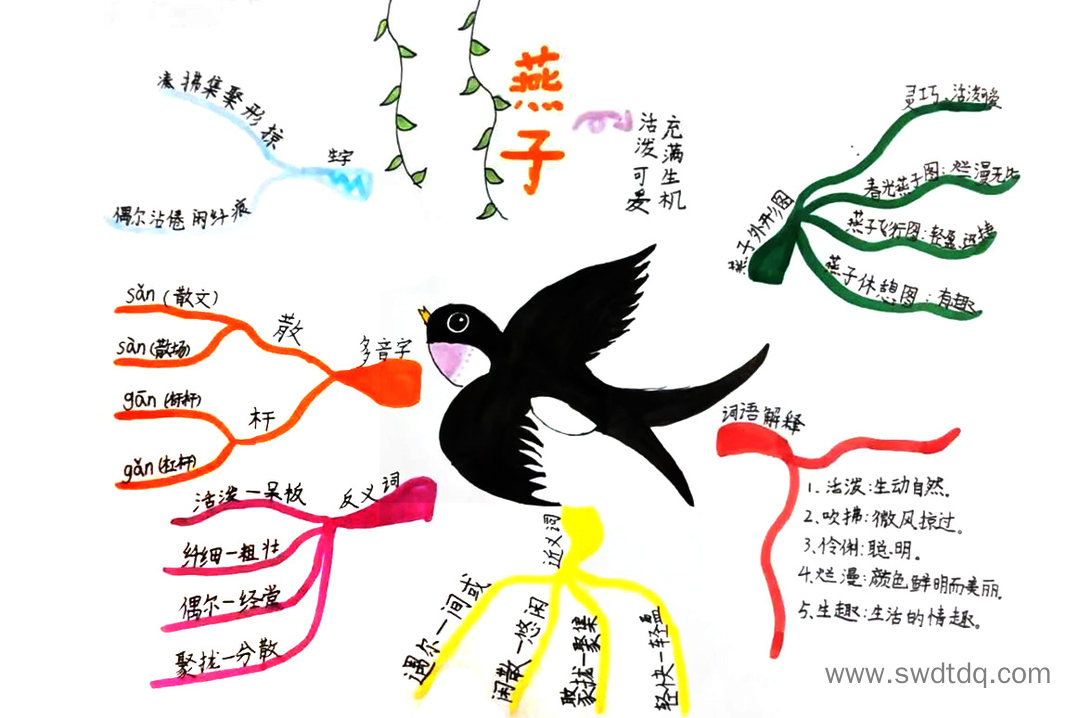 燕子
充满生机
活泼可爱
凑拂集聚形掠
生字
偶尔沾倦闲纤痕
多音字
散
sǎn（散文）
sàn（散场）
杆
gān（标杆）
gǎn（杠杆）
反义词
活泼—呆板
纤细—粗壮
偶尔—经常
聚拢—分散
近义词
遇尔—间或
闲散—悠闲
聚拢—聚集
轻快—轻盈
燕子外形图
灵巧、活泼可爱
春光燕子图：烂漫无比
燕子飞行图：轻盈、迅捷
燕子休憩图：有趣
词语解释
1、活泼：生动自然。
2、吹拂：微风掠过。
3、伶俐：聪明。
4、烂漫：颜色鲜明而美丽。
5、生趣：生活的情趣。
www.swdtdq.com